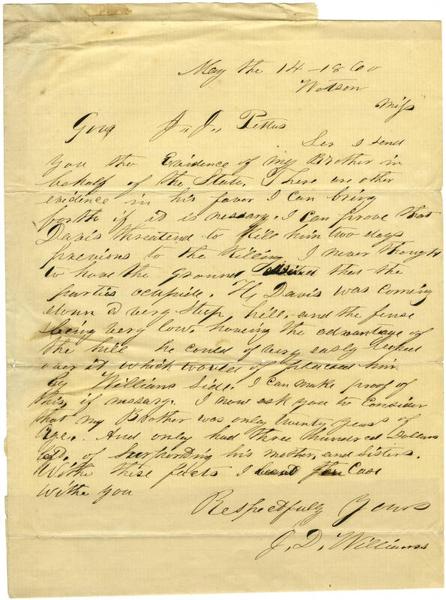 May the 14 - 1860
Watson
Miss
Gov J. J. Pettus
Sir I send
you the Evidence of my Brother in
behalf of the State. There are other
evidence in his favor I can bring
forth if it is nessary. I can prove that
Davis threatend to kill him two days
previous to the killing I never thought
to have the ground that the
parties ocupide. Mr Davis was coming
down a very steep hill, and the fense
being very low, having the advantage of
the hill he could of very easly
over it which would of placed him
by Williams side. I can make proof of
this, if nessary. I now ask you to consider
that my Brother was only twenty years of
age. And only had three hundred Dollars
of surpording his mother, and sisters.
Withe these facts I Case
withe you
Respectfuly Yours
J. D. Williams